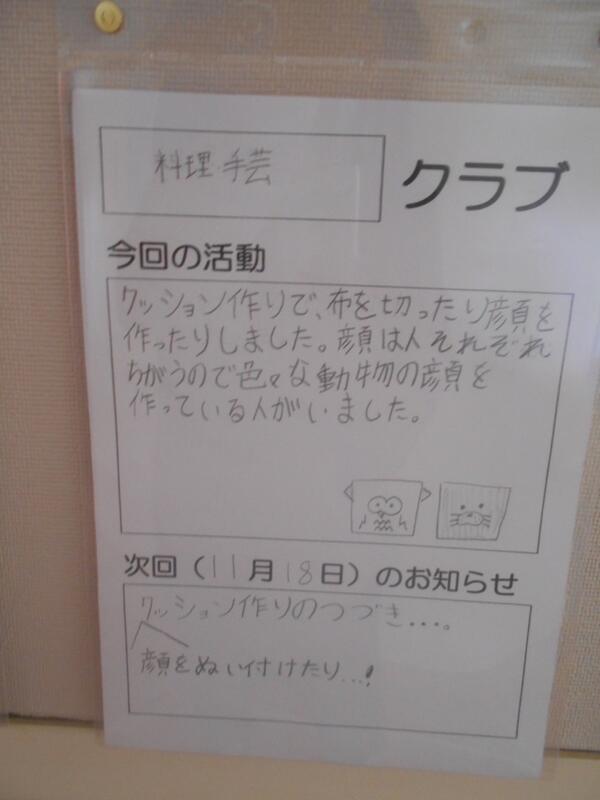 料理・手芸
クラブ
今回の活動
クッション作りで、布を切ったり顔を
作ったりしました。顔は人それぞれ
ちがうので色々な動物の顔を
作っている人がいました。
次回（11月18日）のお知らせ
クッション作りのつづき...。
顔をぬい付けたり...!